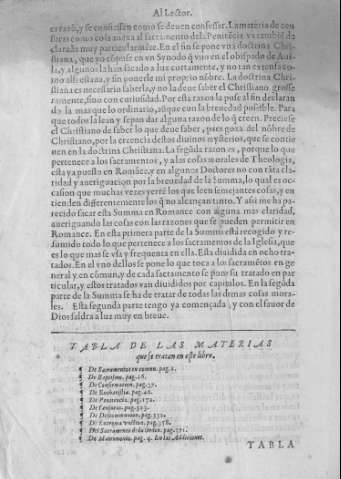 Al Lector.
esta da, y se confiessen como se deuen confessar. La materia de con
ciencia como cosa anexa al sacramento dela Penitẽcia va tambiẽ de
clarada muy particularmẽte. En el fin se pone vna doctrina Chri-
stiana, que yo cõpuse en vn Synodo q̃ vuo en el obispado de Aui-
la, y algunos la han sacado a luz cortamente, y no tan extensa co-
mo alli estaua, y sin ponerle mi proprio nõbre. La doctrina Chri-
stiana es necessario saberla, y no la deue saber el Christiano grosse
ramente, sino con curiosidad. Por esta razon la puse al fin declaran
do la mas que lo ordinario, aũque con la breuedad possible. Para
que todos la lean y sepan dar alguna razon de lo q̃ creen. Precie se
el Christiano de saber lo que deue saber, pues goza del nõbre de
Christiano, por la creencia destos diuinos mysterios, que se contie
nen en la doctrina Christiana. La segũda razon es, porque lo que
pertenece a los sacramentos, y a las cosas morales de Theologia,
esta ya puesto en Romãce, y en algunos Doctores no con tãta cla-
ridad y aueriguacion por la breuedad de la Summa, lo qual es oc-
casion que muchas vezes yerrẽ los que leen semejantes cosas, y en
tienden differentemente los q̃ no alcançan tanto. Y assi me ha pa-
recido sacar esta Summa en Romance con alguna mas claridad,
aueriguando las cosas con las razones que se pueden permitir en
Romance. En esta primera parte de la Summa està recogido y re-
sumido todo lo que pertenece a los sacramentos de la Iglesia, que
es lo que mas se vsa y frequenta en ella. Esta diuidida en ocho tra-
tados. En el vno dellos se pone lo que toca a los sacramẽtos en ge
neral y en comun, y de cada sacramento se pone su tratado en par
ticular, y estos tratados van diuididos por capitulos. En la segũda
parte de la Summa se ha de tratar de todas las demas cosas mora-
les. Esta segunda parte tengo ya começada, y con el fauor de
Dios saldra a luz muy en breue.
TABLA DE LAS MATERIAS
que se tratan en este libro.
¶ De Sacramentos en comun. pag. 1.
¶ De Baptismo. pag. 16.
¶ De Confirmacion. pag. 37.
¶ De Eucharistia. pag. 46.
¶ De Penitencia. pag. 172.
¶ De Censuras. pag. 303.
¶ De Descomunion. pag. 332.
¶ De Extrema vnction. pag. 358.
¶ Del Sacramento de la Orden. pag. 371.
¶ De Matrimonio. pag. 4. En las Addiciones.
TABLA